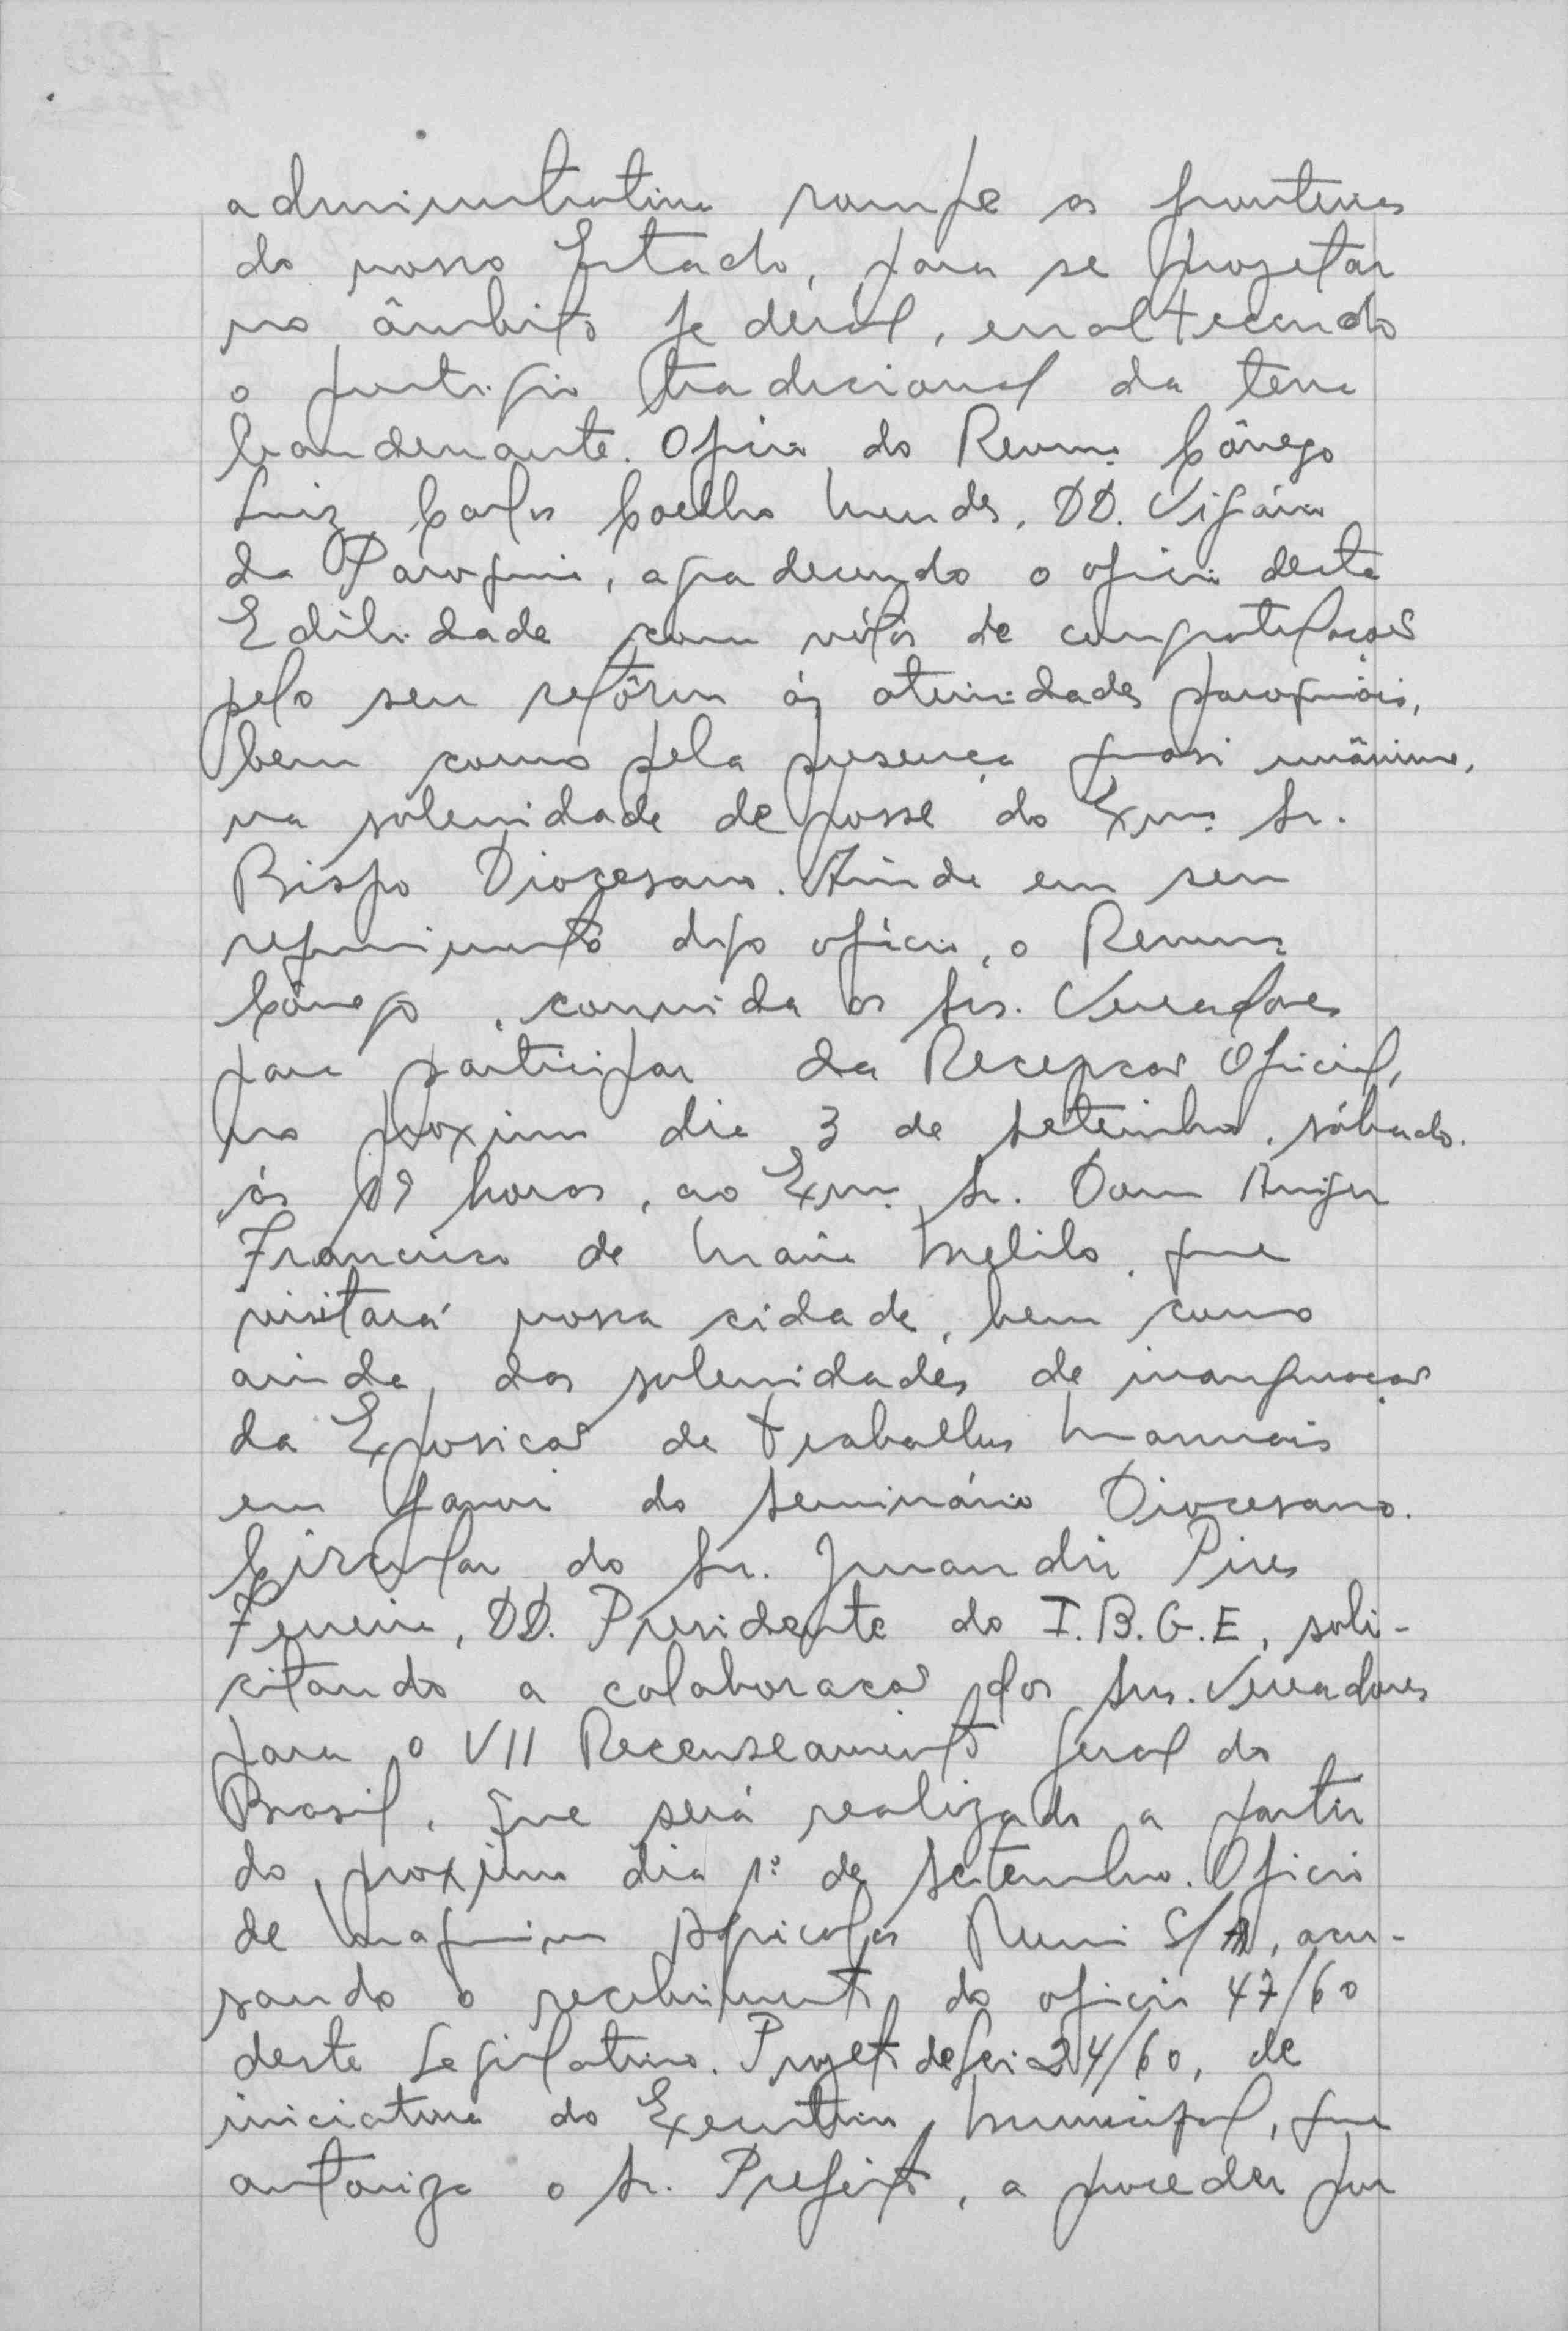 administrativa rompe as fronteiras
do nosso Estado, para se projetar
no âmbito federal, enaltecendo
o prestigio tradicional da terra
bandeirante. Oficio do Revmº Cônego
Luiz Carlos Coelho Mendes, DD. Vigário
da Paroquia, agradecendo o oficio desta
Edilidade com vótos de congratulações
pelo seu retôrno ás atividades paroquiais,
bem como pela presença quasi unânime,
na solenidade de posse do Exmº Sr.
Bispo Diocesano. Ainda em seu
oficio, o Revmº
Cônego, convida os Srs. Vereadores
para participar da Recepcão Oficial,
no proximo dia 3 de Setembro, sábado.
ás 19 horas, ao Exmº Sr. Dom Henrique
Francisco de Maria Melilo, que
visitará nossa cidade, bem como
ainda, das solenidades de inauguração
da Exposicão de Trabalhos Manuais
em favor do Seminário Diocesano.
Circular do Sr. Jurandir Pires
Ferreira, DD. Presidente do I.B.G.E, soli-
citando a colaboracão dos Srs. Vereadores
para o VII Recenseamento Geral do
Brasil, que será realizado a partir
do proximo dia 1º de Setembro. Oficio
de Maquinas Agricolas S/A, acu-
sando o recebimento do oficio 47/60
deste Legislativo. Projeto de Lei 24/60, de
iniciativa do Executivo Municipal, que
autoriza o Sr. Prefeito, a proceder por